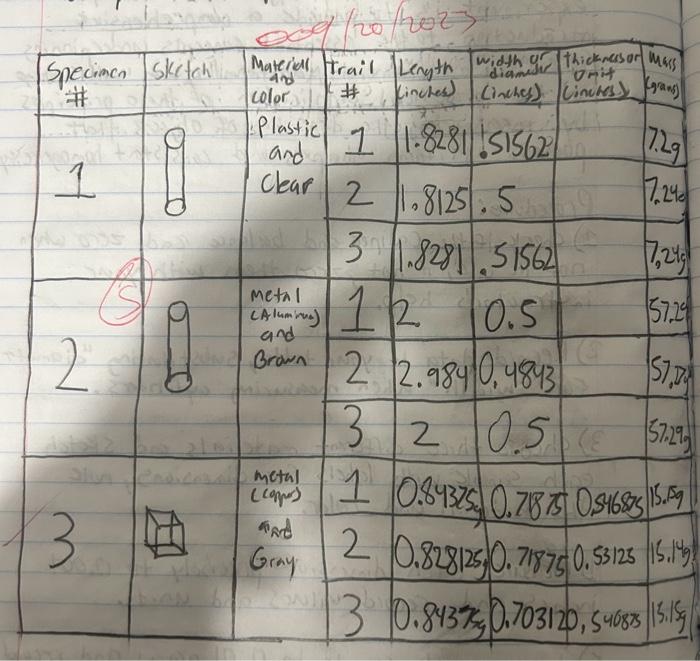 09/20/2023
Specimen # Sketch Material and color Trail # Length (inches) width or diameter (inches) thickness or omit (inches) Mass (grams)
1 Plastic and Clear 1 1.8281 .51562 7.2g
2 1.8125 .5 7.24g
3 1.8281 .51562 7.24g
5
2 Metal (Aluminum) and Brown 1 2 0.5 57.29
2 2.984 0.4843
3 2 0.5 57.29g
3 Metal (copper) and Gray 1 0.84375 0.71875 0.546875 15.15g
2 0.828125 0.71875 0.53125 15.14g
3 0.84375 0.70312 0.546875 15.15g